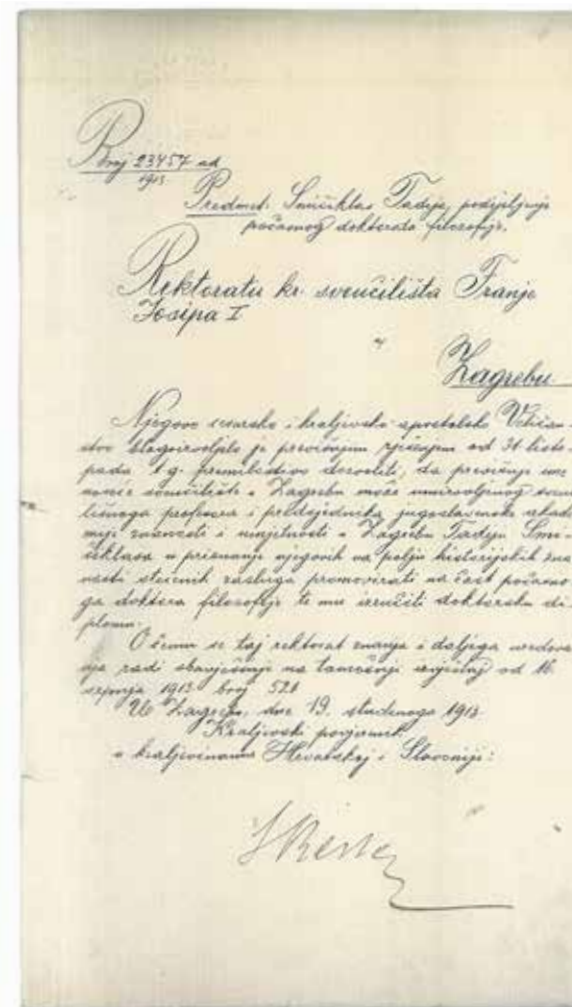 Broj 23457 ad
1913
Predmet: Smičiklas Tadija, podjeljenje
počasnog doktorata filozofije.
Rektoratu kr. sveučilišta Franje
Josipa I
u
Zagrebu
Njegovo cesarsko i kraljevsko apostolsko Veličan-
stvo blagoizvoljelo je previšnjim rješenjem od 31 listo-
pada t. g. premilostivo dozvoliti, da previšnje ime
noseće sveučilište u Zagrebu može umirovljenog sveuči
lišnoga profesora i predsjednika jugoslavenske akade
mije znanosti i umjetnosti u Zagrebu Tadiju Smi-
čiklasa u priznanju njegovih na polju historijskih zna
nosti stečenih zasluga promovirati na čast počasno
ga doktora filozofije te mu izručiti doktorsku di
plomu.
O čemu se taj rektorat znanja i daljega uredova
nja radi obavješćuje na tamošnji izvještaj od 16
srpnja 1913 broj 521
U Zagrebu, dne 19. studenoga 1913.
Kraljevski povjerenik
u kraljevinama Hrvatskoj i Slavoniji: